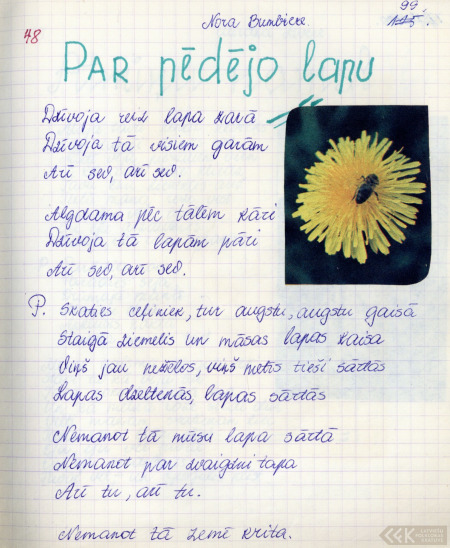 Nora Bumbiere.
99.
48
PAR pēdējo lapu
Dzīvoja reiz lapa zarā
Dzīvoja tā visiem garām
Arī sev, arī sev.
Algdama pēc tālēm kāri
Dzīvoja tā lapām pāri
Arī sev, arī sev.
P. Skaties ceļiniek, tur augstu, augstu gaisā
Staigā ziemelis un māsas lapas kaisa
Viņš jau nežēlos, viņš metīs tieši sārtās
Lapas dzeltenās, lapas sārtās
Nemanot tā mūsu lapa sārtā
Nemanot par zvaigzni tapa
Arī tu, arī tu.
Nemanot tā zemē krita.